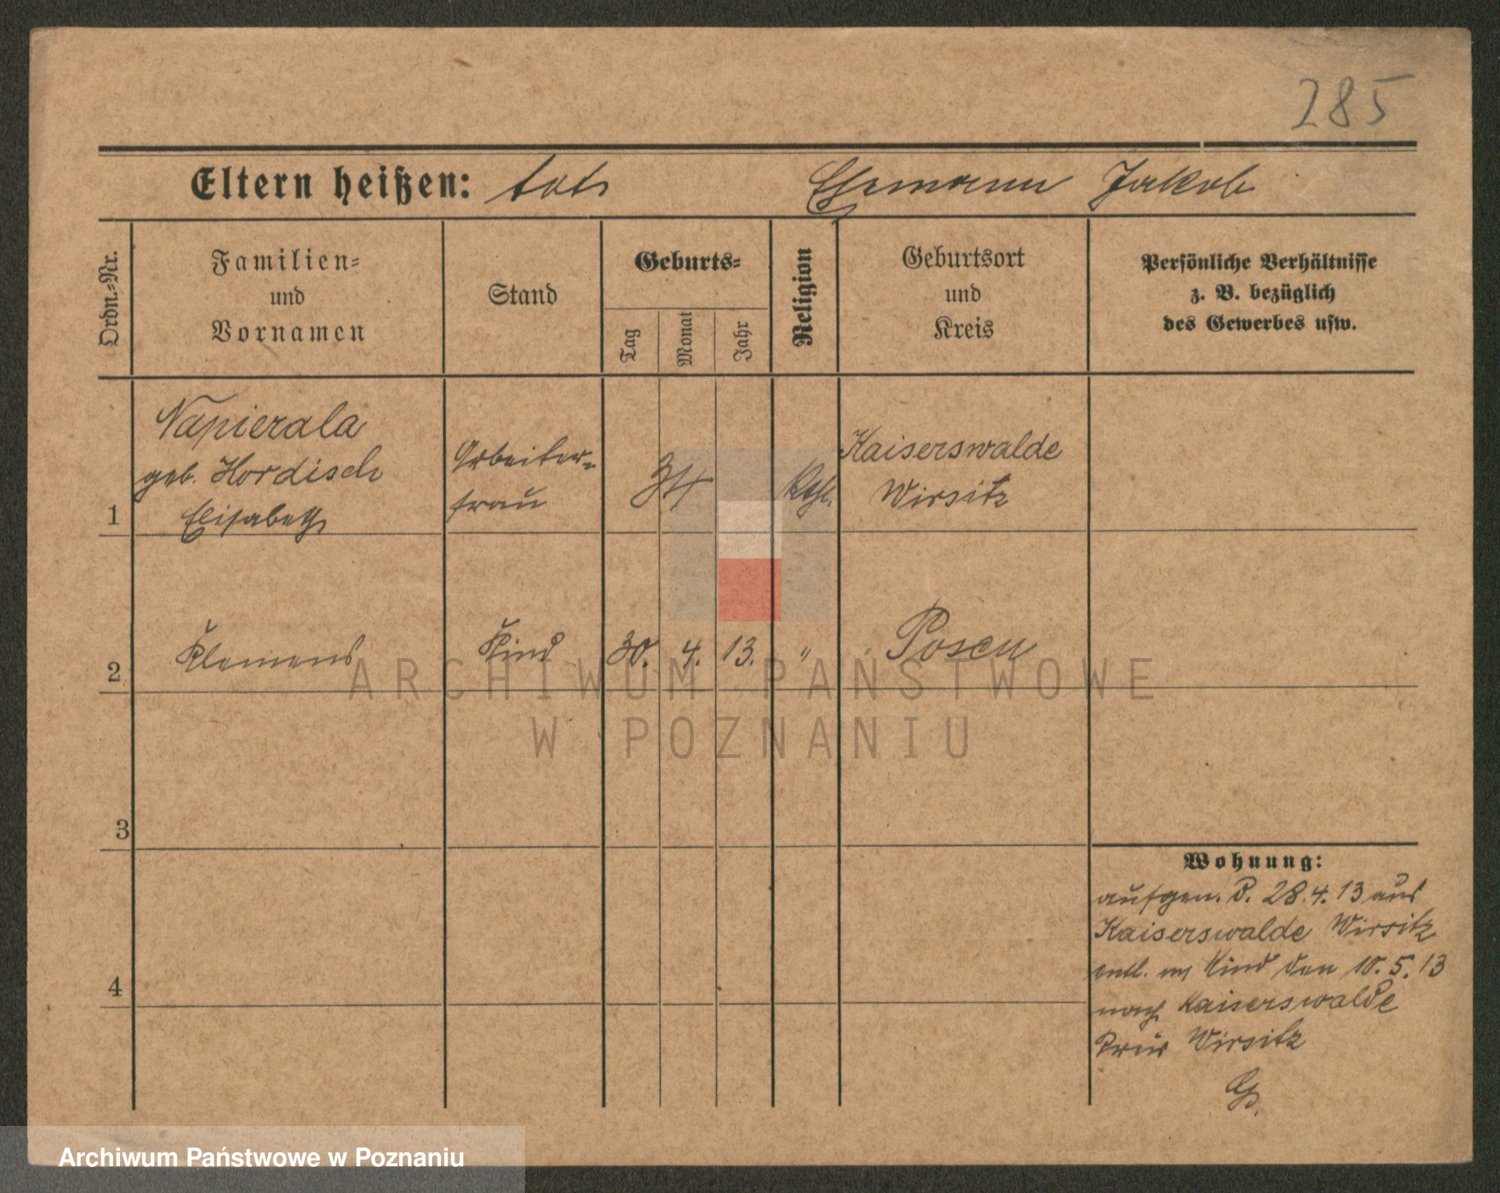 285
Eltern heißen: tot Ehemann Jakob
Ordn.-Nr.
Familien-
und
Vornamen
Stand
Geburts-
Tag
Monat
Jahr
Religion
Geburtsort
und
Kreis
Persönliche Verhältnisse
z. B. bezüglich
des Gewerbes usw.
1
Napierala
geb. Hordisch
Elisabeth
Arbeiter-
frau
34
Kath.
Kaiserswalde
Wirsitz
2
Klemens
Kind
30. 4. 13.
"
Posen
3
4
Wohnung:
aufgen. d. 28.4.13 aus
Kaiserswalde Wirsitz
entl. m Kind den 10.5.13
nach Kaiserswalde
Kreis Wirsitz
ARCHIWUM PAŃSTWOWE
W POZNANIU
Archiwum Państwowe w Poznaniu